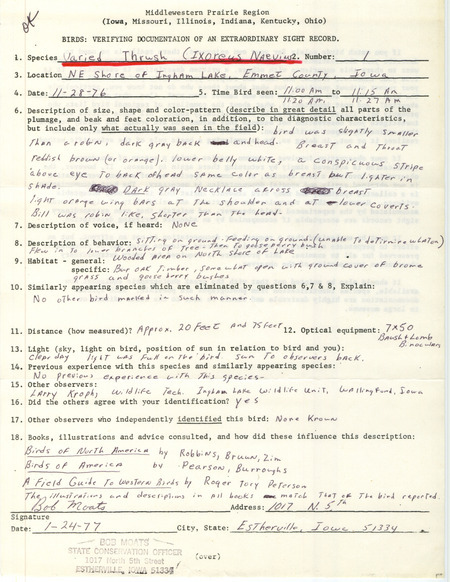 ok
Middlewestern Prairie Region
(Iowa, Missouri, Illinois, Indiana, Kentucky, Ohio)
BIRDS: VERIFYING DOCUMENTAION OF AN EXTRAORDINARY SIGHT RECORD.
1. Species Varied Thrush (Ixoreus Naevius 2. Number: 1
3. Location NE Shore of Ingham Lake, Emmet County, Iowa
4. Date: 11-28-76 5. Time Bird seen: 11:00 AM to 11:15 AM
11:20 AM. 11:27 AM
6. Description of size, shape and color-pattern (describe in great detail all parts of the
plumage, and beak and feet coloration, in addition, to the diagnostic characteristics,
but include only what actually was seen in the field): bird was slightly smaller
than a robin, dark gray back and head. Breast and throat
reddish brown (or orange). lower belly white, a conspicuous stripe
above eye to back of head same color as breast but lighter in
shade. Dark gray necklace across breast
light orange wing bars at the shoulder and at lower coverts.
Bill was robin like, shorter than the head.
7. Description of voice, if heard: None
8. Description of behavior: Sitting on ground - Feeding on ground (unable to determine what on)
Flew in to lower branches of tree - then to gooseberry bush
9. Habitat - general: Wooded area on North shore of Lake
specific: Bur oak timber, somewhat open with ground cover of brome
grass and gooseberry bushes
10. Similarly appearing species which are eliminated by questions 6,7 & 8, Explain:
No other bird marked in such manner.
11. Distance (how measured)? Approx. 20 feet and 75 feet 12. Optical equipment: 7x50
Baush & Lomb
Binocular
13. Light (sky, light on bird, position of sun in relation to bird and you):
clear day light was full on the bird sun to observers back.
14. Previous experience with this species and similarly appearing species:
No previous experience with this species.
15. Other observers:
Larry Wildlife Tech. Ingham Lake Wildlife Unit, Wallingford, Iowa
16. Did the others agree with your identification? yes
17. Other observers who independently identified this bird: None Known
18. Books, illustrations and advice consulted, and how did these influence this description:
Birds of North America by Robbins, Bruun, Zim
Birds of America by Pearson, Burroughs
A Field Guide to Western Birds by Roger Tory Peterson
The illustrations and descriptions in all books match that of the bird reported.
Bob Moats Address: 1017 N. 5th
Signature
Date: 1-24-77 City, State: Estherville, Iowa 51334
BOB MOATS
STATE CONSERVATION OFFICER
1017 North 5th Street
ESTHERVILLE, IOWA 51334
(over)